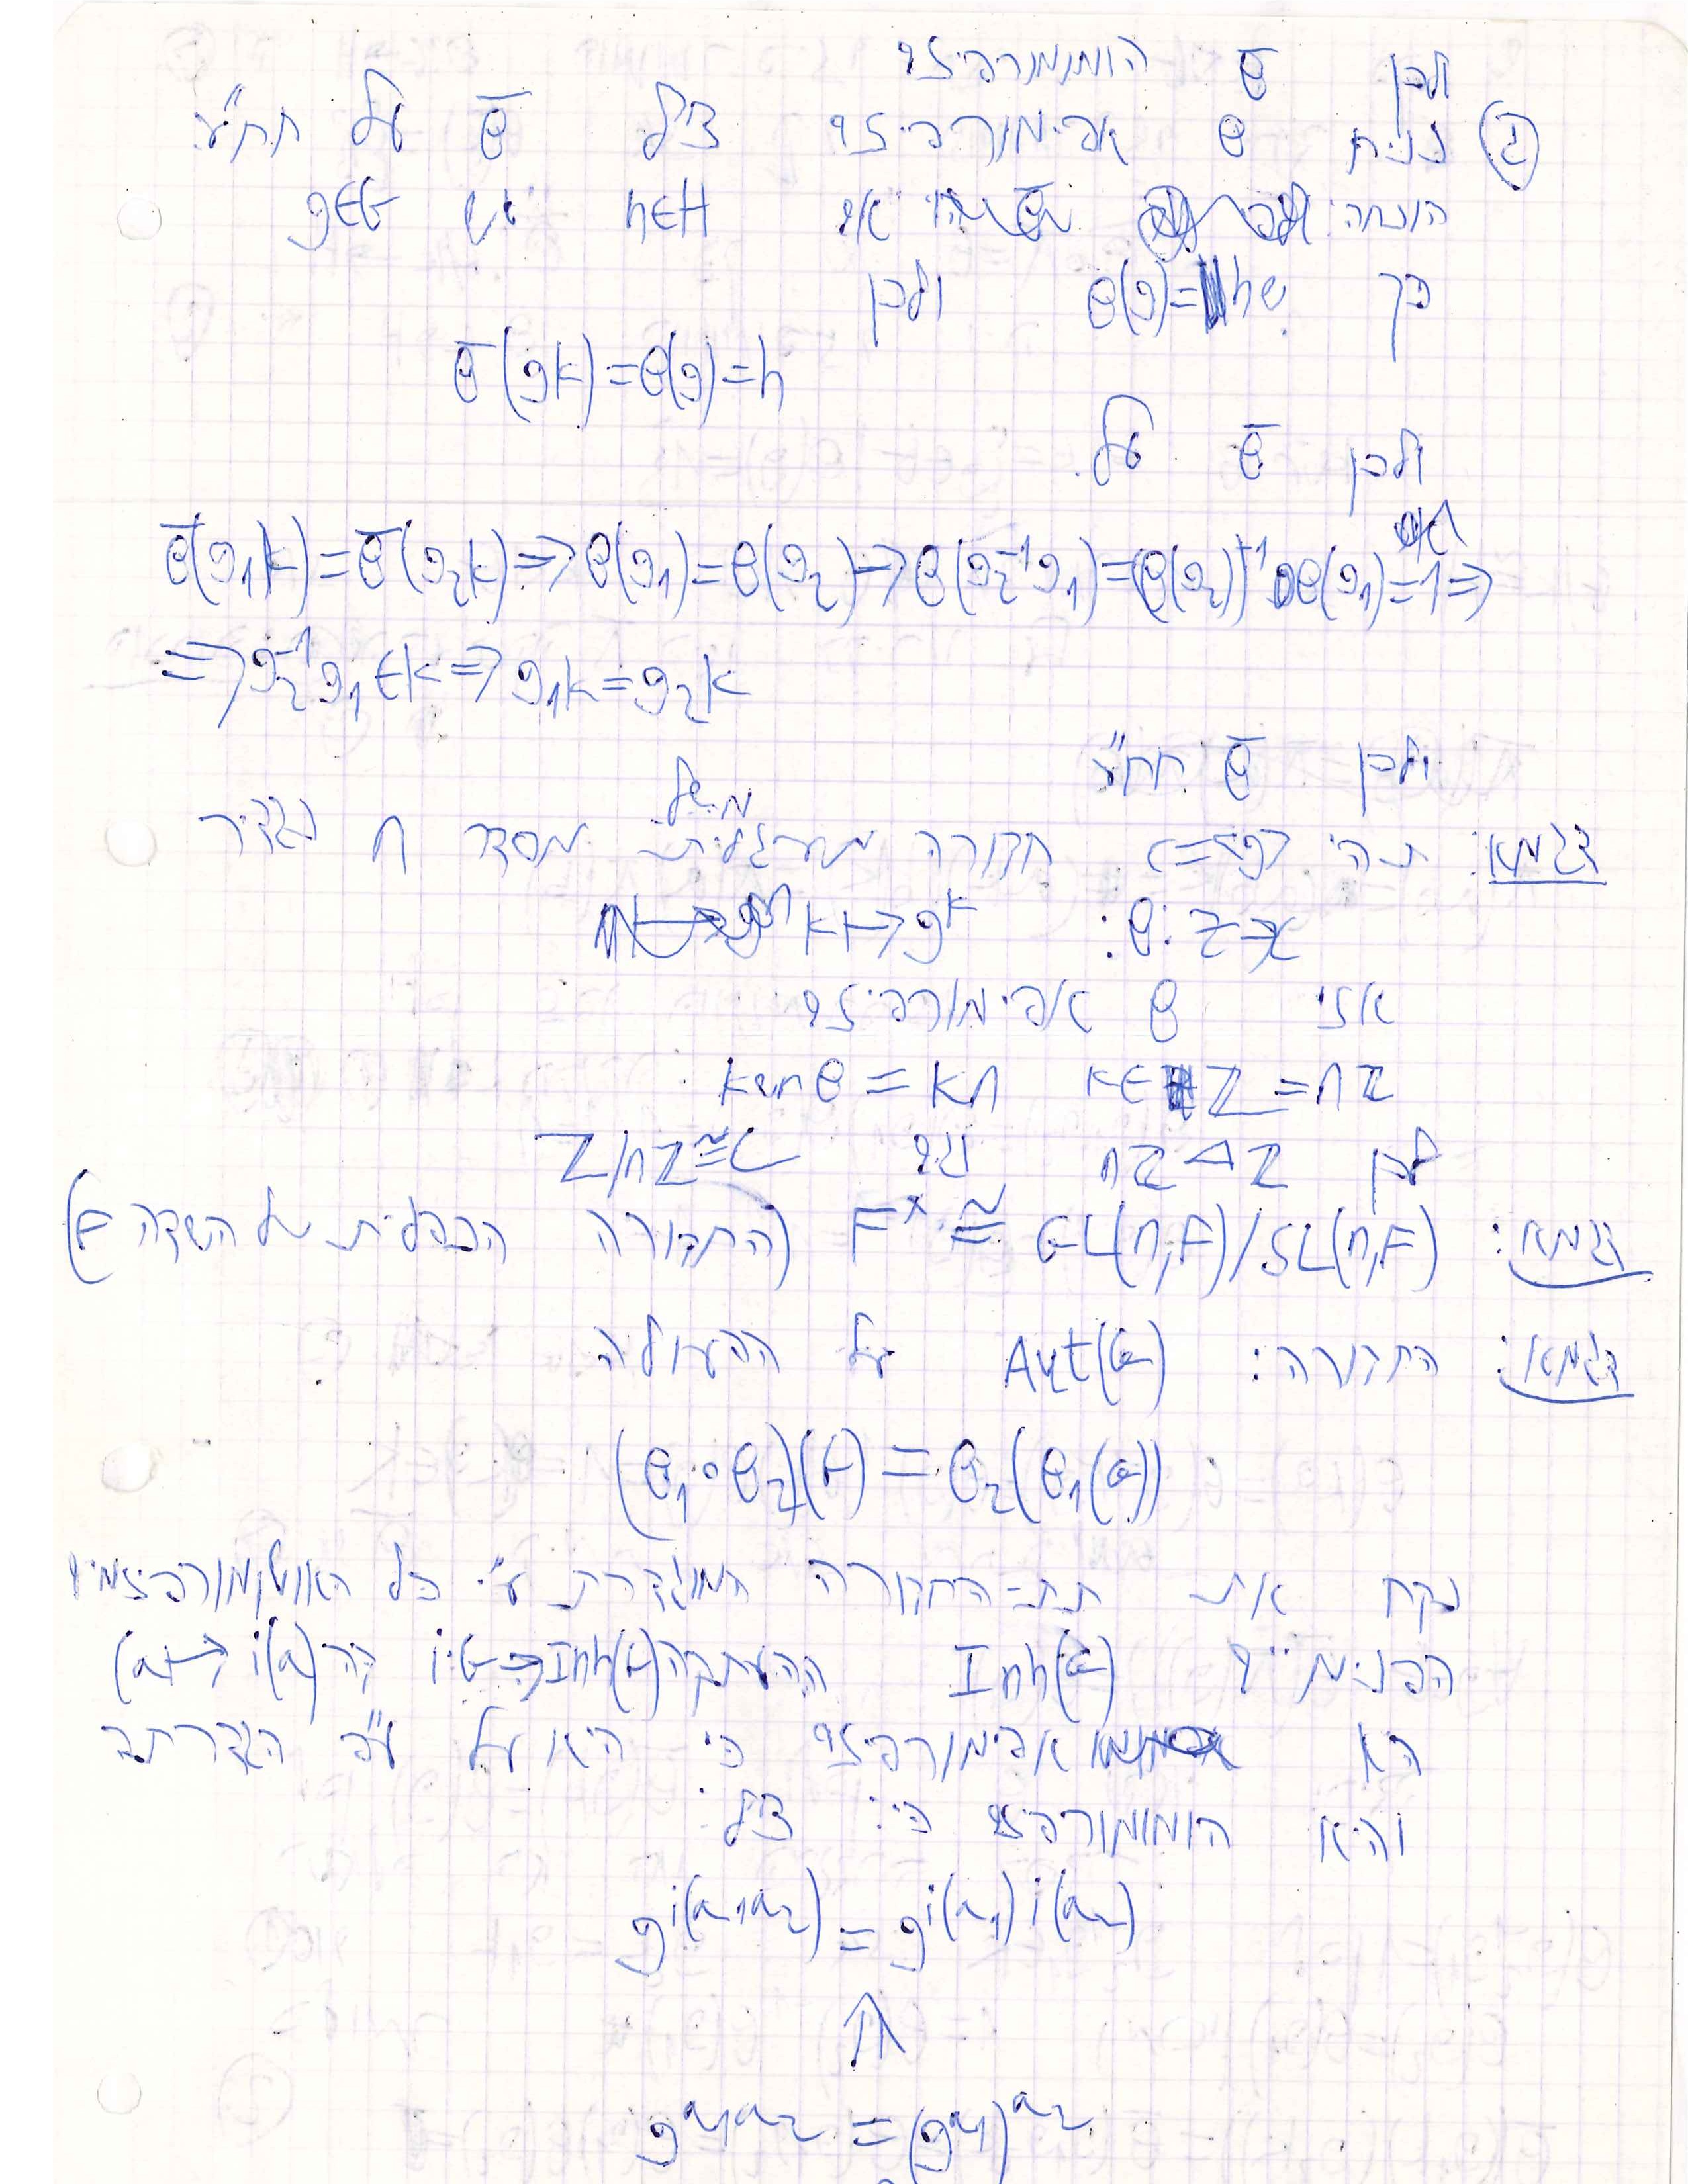 ולכן θ̄ הומומורפיזם
(ג) נניח θ אפימורפיזם צ"ל θ̄ על וחח"ע
הוכחה: אם h∈H יש g∈G
כך ש θ(g)=h ולכן
θ̄(gK)=θ(g)=h
ולכן θ̄ על.
θ̄(g₁K)=θ̄(g₂K)⇒θ(g₁)=θ(g₂)⇒θ(g₂⁻¹g₁)=(θ(g₂))⁻¹θ(g₁)=1⇒
⇒g₂⁻¹g₁∈K⇒g₁K=g₂K
ולכן θ̄ חח"ע
דוגמא: תהי C=<g> חבורה מעגלית מסדר n נגדיר
למשל
θ: Z→C: k↦gᵏ
אזי θ אפימורפיזם
kerθ = kn k∈Z = nZ
לכן nZ⊲Z וגם Z/nZ≅C
דוגמא: GL(n,F)/SL(n,F) ≅ Fˣ (החבורה הכפלית של השדה F)
דוגמא: החבורה: Aut(G) על הפעולה
(θ₁∘θ₂)(G) = θ₂(θ₁(G))
נקח את תת-החבורה המוגדרת ע"י כל האוטומורפיזמים
הפנימיים Inn(G) ההעתקה i:G→Inn(G) (a↦i(a))
היא אפימורפיזם כי היא על ע"פ הגדרתה
והיא הומומורפיזם כי: צ"ל:
g^{i(a₁a₂)} = g^{i(a₁)i(a₂)}
⇑
g^{a₁a₂} = (g^{a₁})^{a₂}